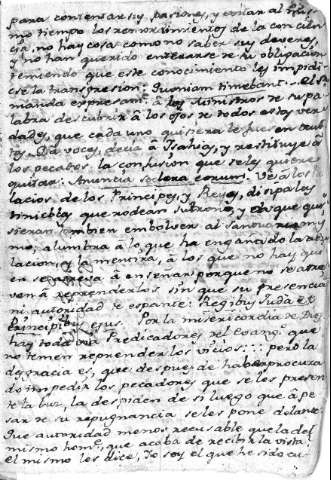 para contentar sus pasiones, y evitar al mis
mo tiempo los remordimientos de la concien
cia, no hay cosa como no saber sus deveres,
y no han querido enterarse de su obligacion
temiendo que este conocimiento les impidi
ese la transgresion: Quoniam timebant... el Sr.
manda expresamte. à los Ministros de su pa
labra descubrir à los ojos de todos estas ver
dades, que cada uno quisiera le fuesen ocul
tas. Dà voces, decia à Isahias, y restituye à
los pecados la confusion que se les quiere
quitar: Anuntia scelera eorum. Ve à los Pa
lacios de los Principes, y Reyes, disipa las
tinieblas que rodean su trono, y las que qui
sieran tambien embolver al Santuario mis
mo; alumbra à los que ha engañado la adu
lacion, y la mentira, à los que no hay quien
en seguida à enseñar porque no se atre
ven à reprenderlos sin que su presencia
ni autoridad te espante: Regibus Juda et
Principibus ejus. Por la misericordia de Dios
hay todavia Predicadores del Evango. que
no temen reprender los vicios: ... pero la
desgracia es, que despues de haber procura
do impedir los pecadores que se les presen
te la luz, la despiden de sì luego que à pe
sar de su repugnancia se les pone delante.
Que autoridad menos recusable que la del
mismo home. que acaba de recibir la vista!
el mismo les dice, Yo soy el que he sido cu